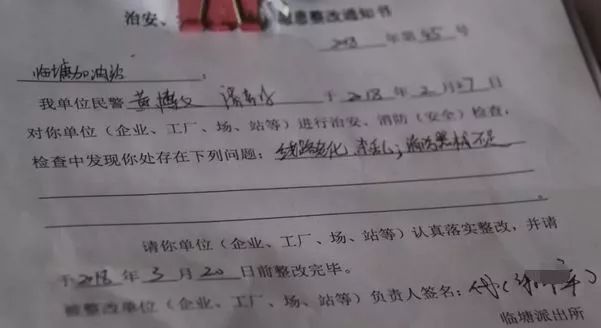 治安、 隐患整改通知书
2018 年第 45 号
临塘加油站:
我单位民警 黄博文 于 2018 年 2 月 27 日
对你单位(企业、工厂、场、站等)进行治安、消防(安全)检查,
检查中发现你处存在下列问题: 线路老化、杂乱;消防器材不足
请你单位(企业、工厂、场、站等)认真落实整改,并请
于 2018 年 3 月 20 日前整改完毕。
被整改单位(企业、工厂、场、站等)负责人签名:
临塘派出所